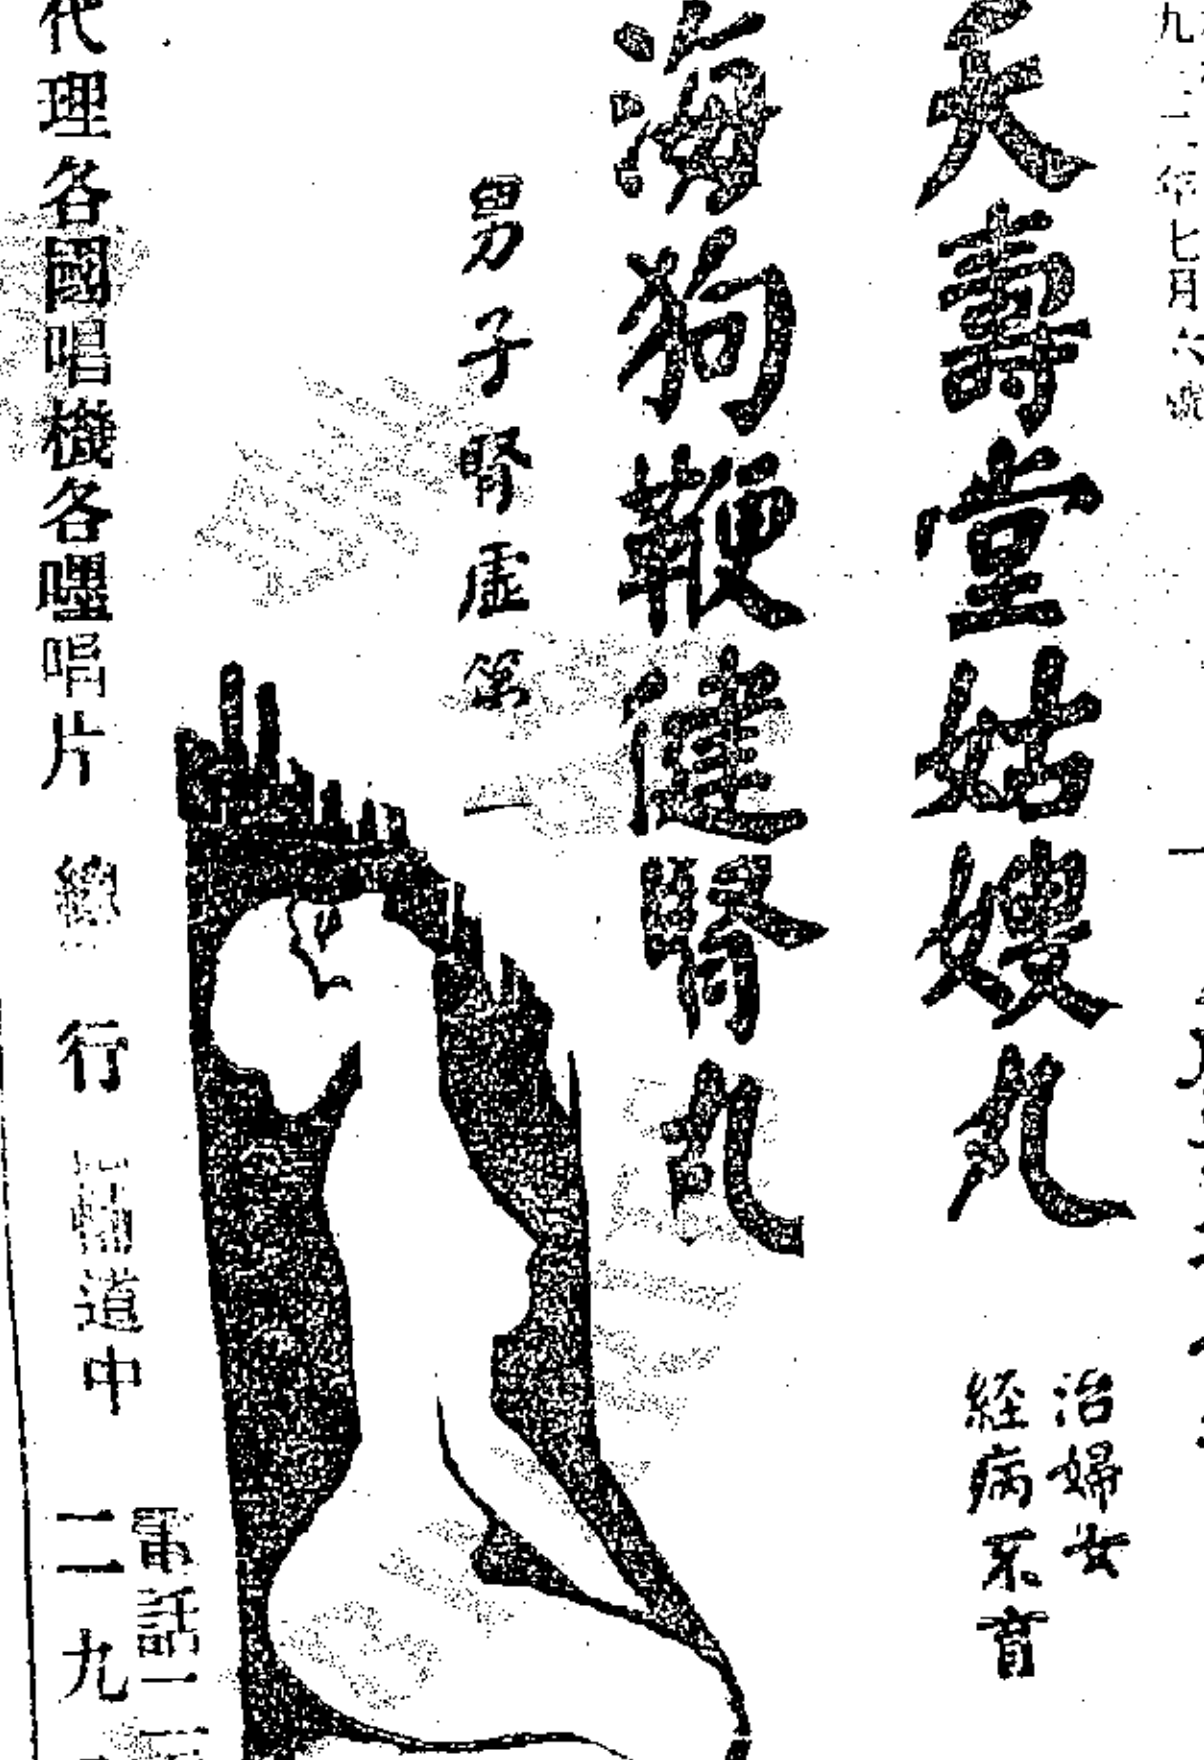 九三二年七月六號
天壽堂姑嫂丸
治婦女
経病不育
海狗鞭健腎丸
男子腎虛第一
電話二
代理各國唱機各嘜唱片 總行 道中 二九